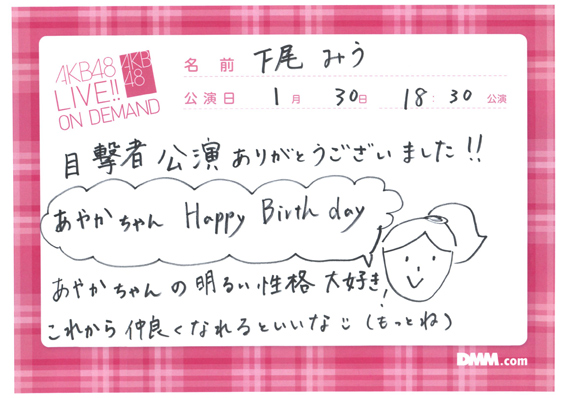 AKB48
LIVE!!
ON DEMAND
AKB
48
名前 下尾 みう
公演日 1月 30日 18:30 公演
目撃者公演ありがとうございました!!
あやかちゃん Happy Birthday
あやかちゃんの明るい性格大好き!
これから仲良くなれるといいな (もっとね)
DMM.com